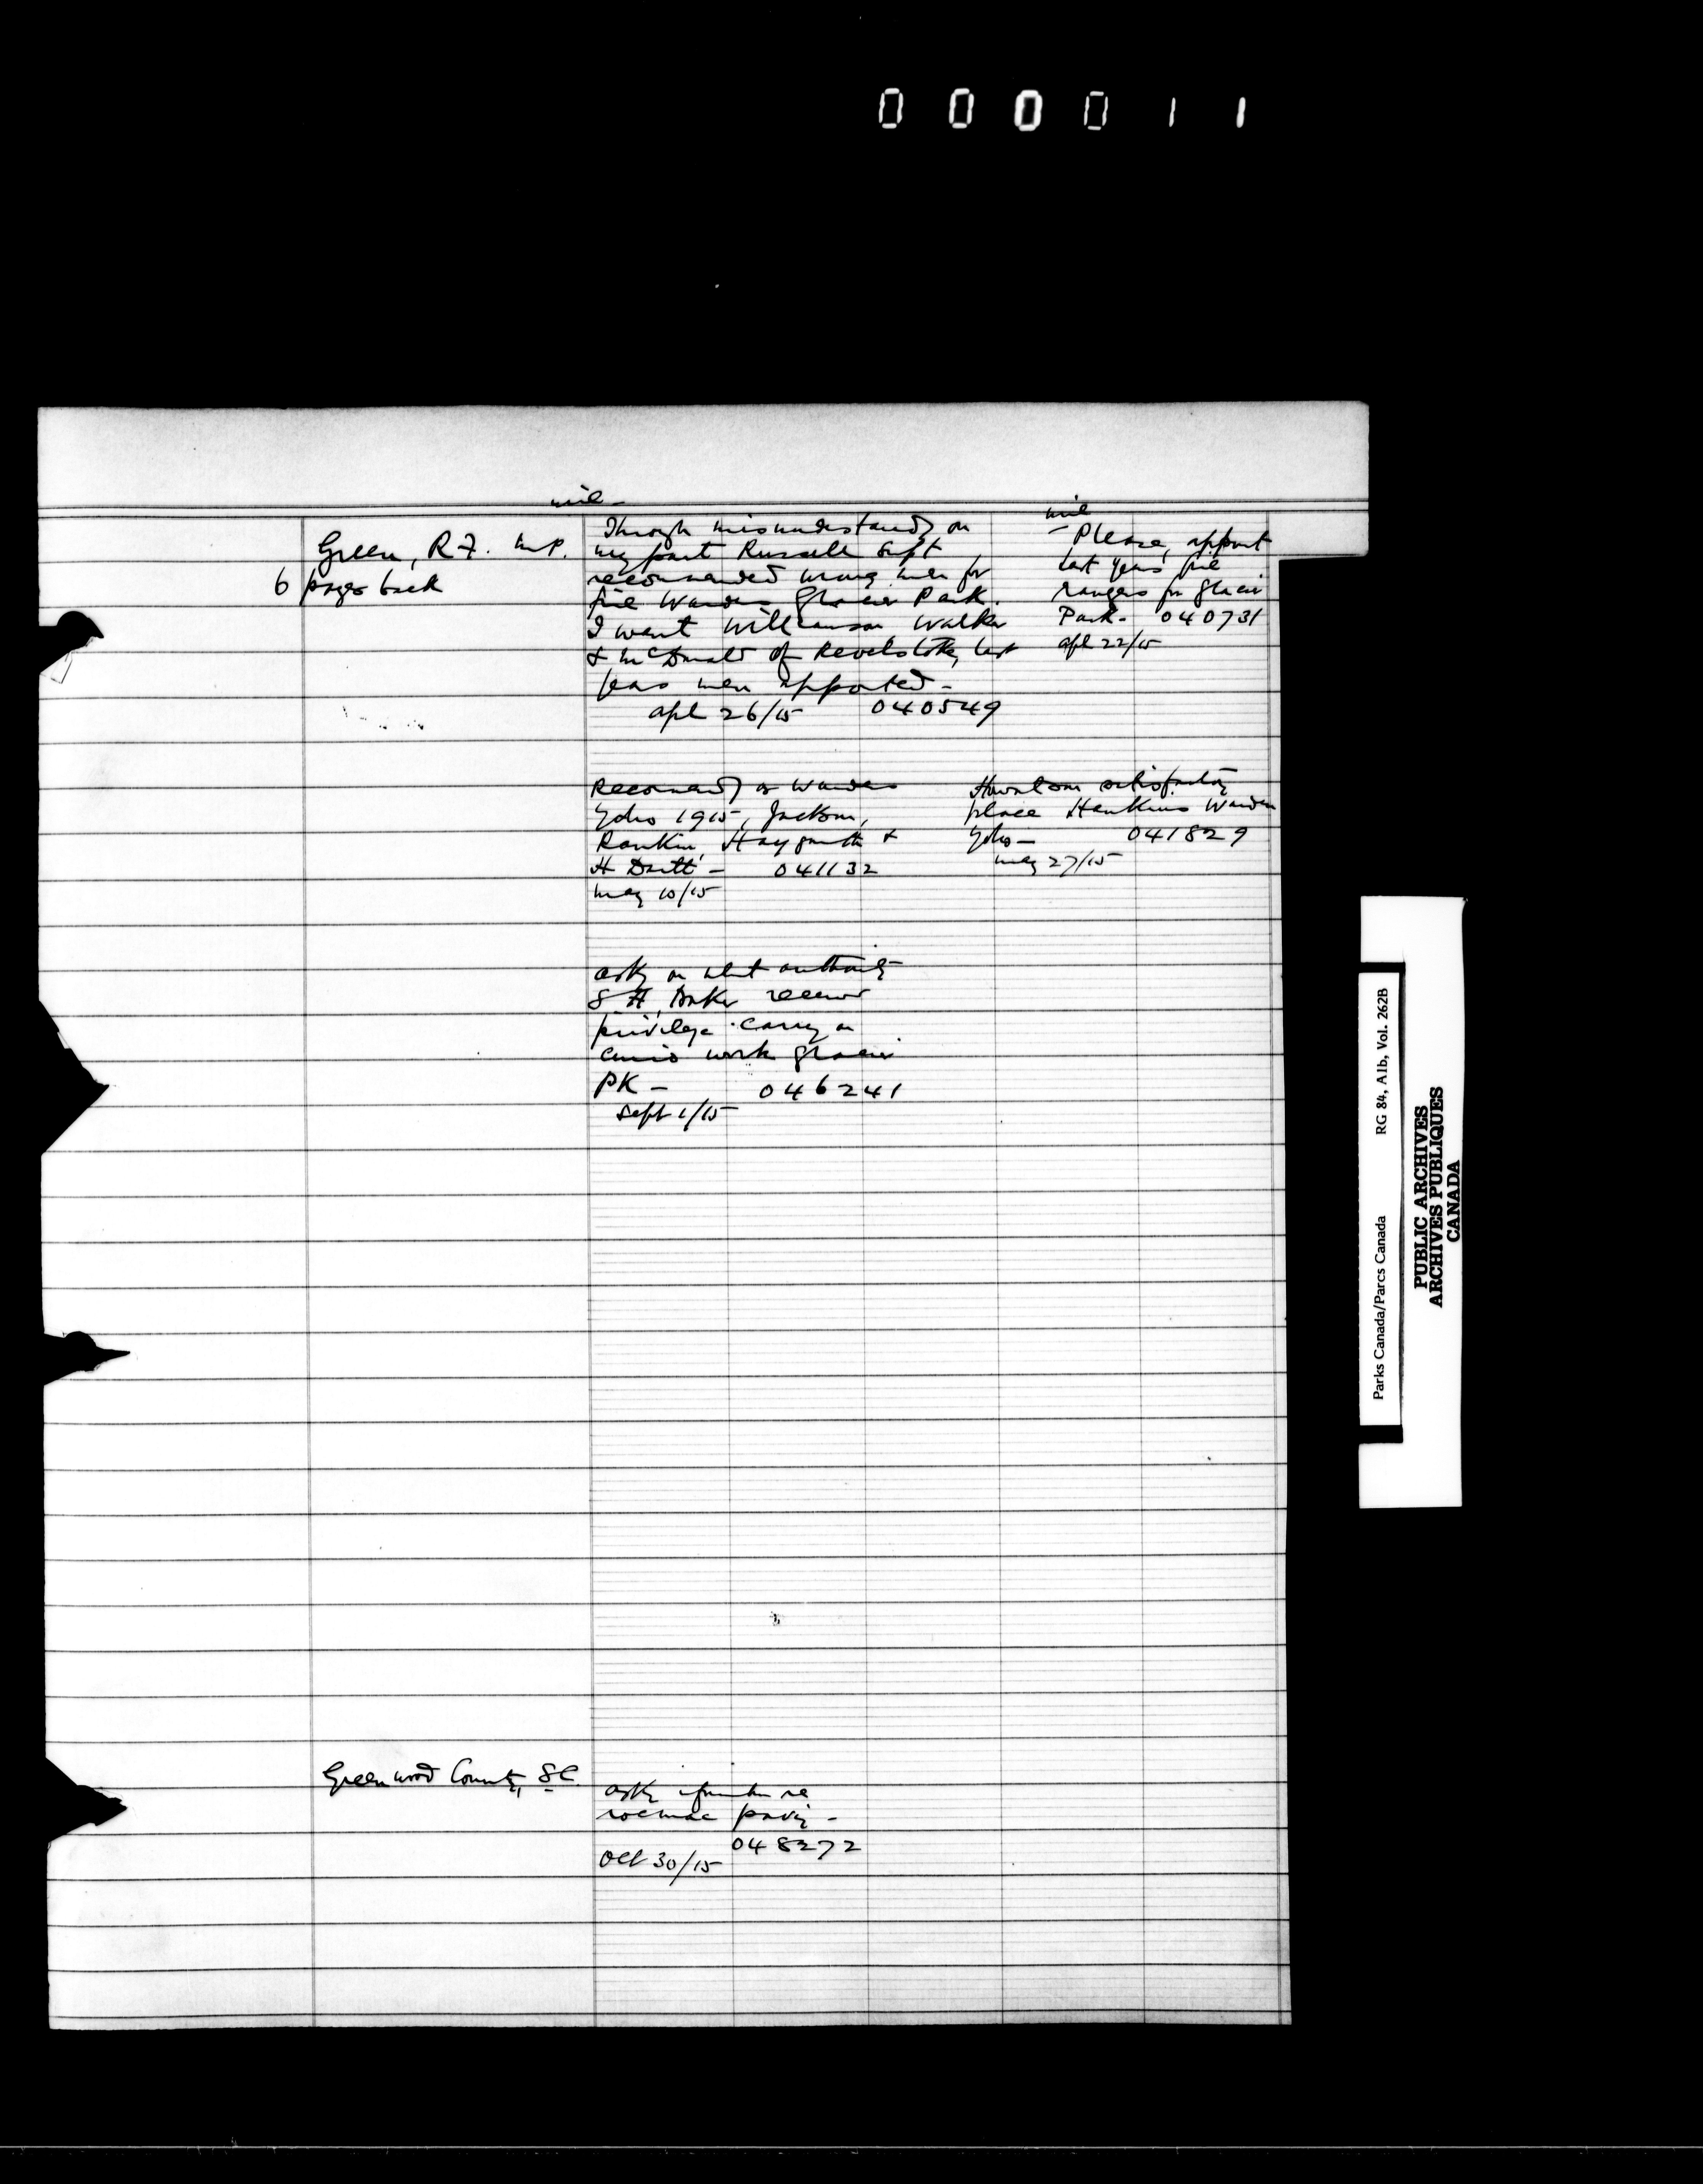 000011
wire -
Green, R.F. M.P.
6 pages back
Through misunderstandg on
my part Russell Supt
recommended wrong men for
fire Wardens Glacier Park.
I want Williamson Walker
& McDonald of Revelstoke, last
years men appointed -
apl 26/15 040549
wire
- Please, appoint
last years fire
rangers for Glacier
Park - 040731
apl 22/15
Recommends as Wardens
Yoho 1915, Jackson,
Rankin, &
H - 041132
May 10/15
satisfactory
place Hankins Warden
Yoho - 041829
May 27/15
asks on what authority
S H Baker receives
privilege carry on
curio work Glacier
PK - 046241
Sept 1/15
Greenwood County, S.C.
asks infn re
rocmac pavg -
048272
Oct 30/15
Parks Canada/Parcs Canada RG 84, Alb, Vol. 262B
PUBLIC ARCHIVES
ARCHIVES PUBLIQUES
CANADA